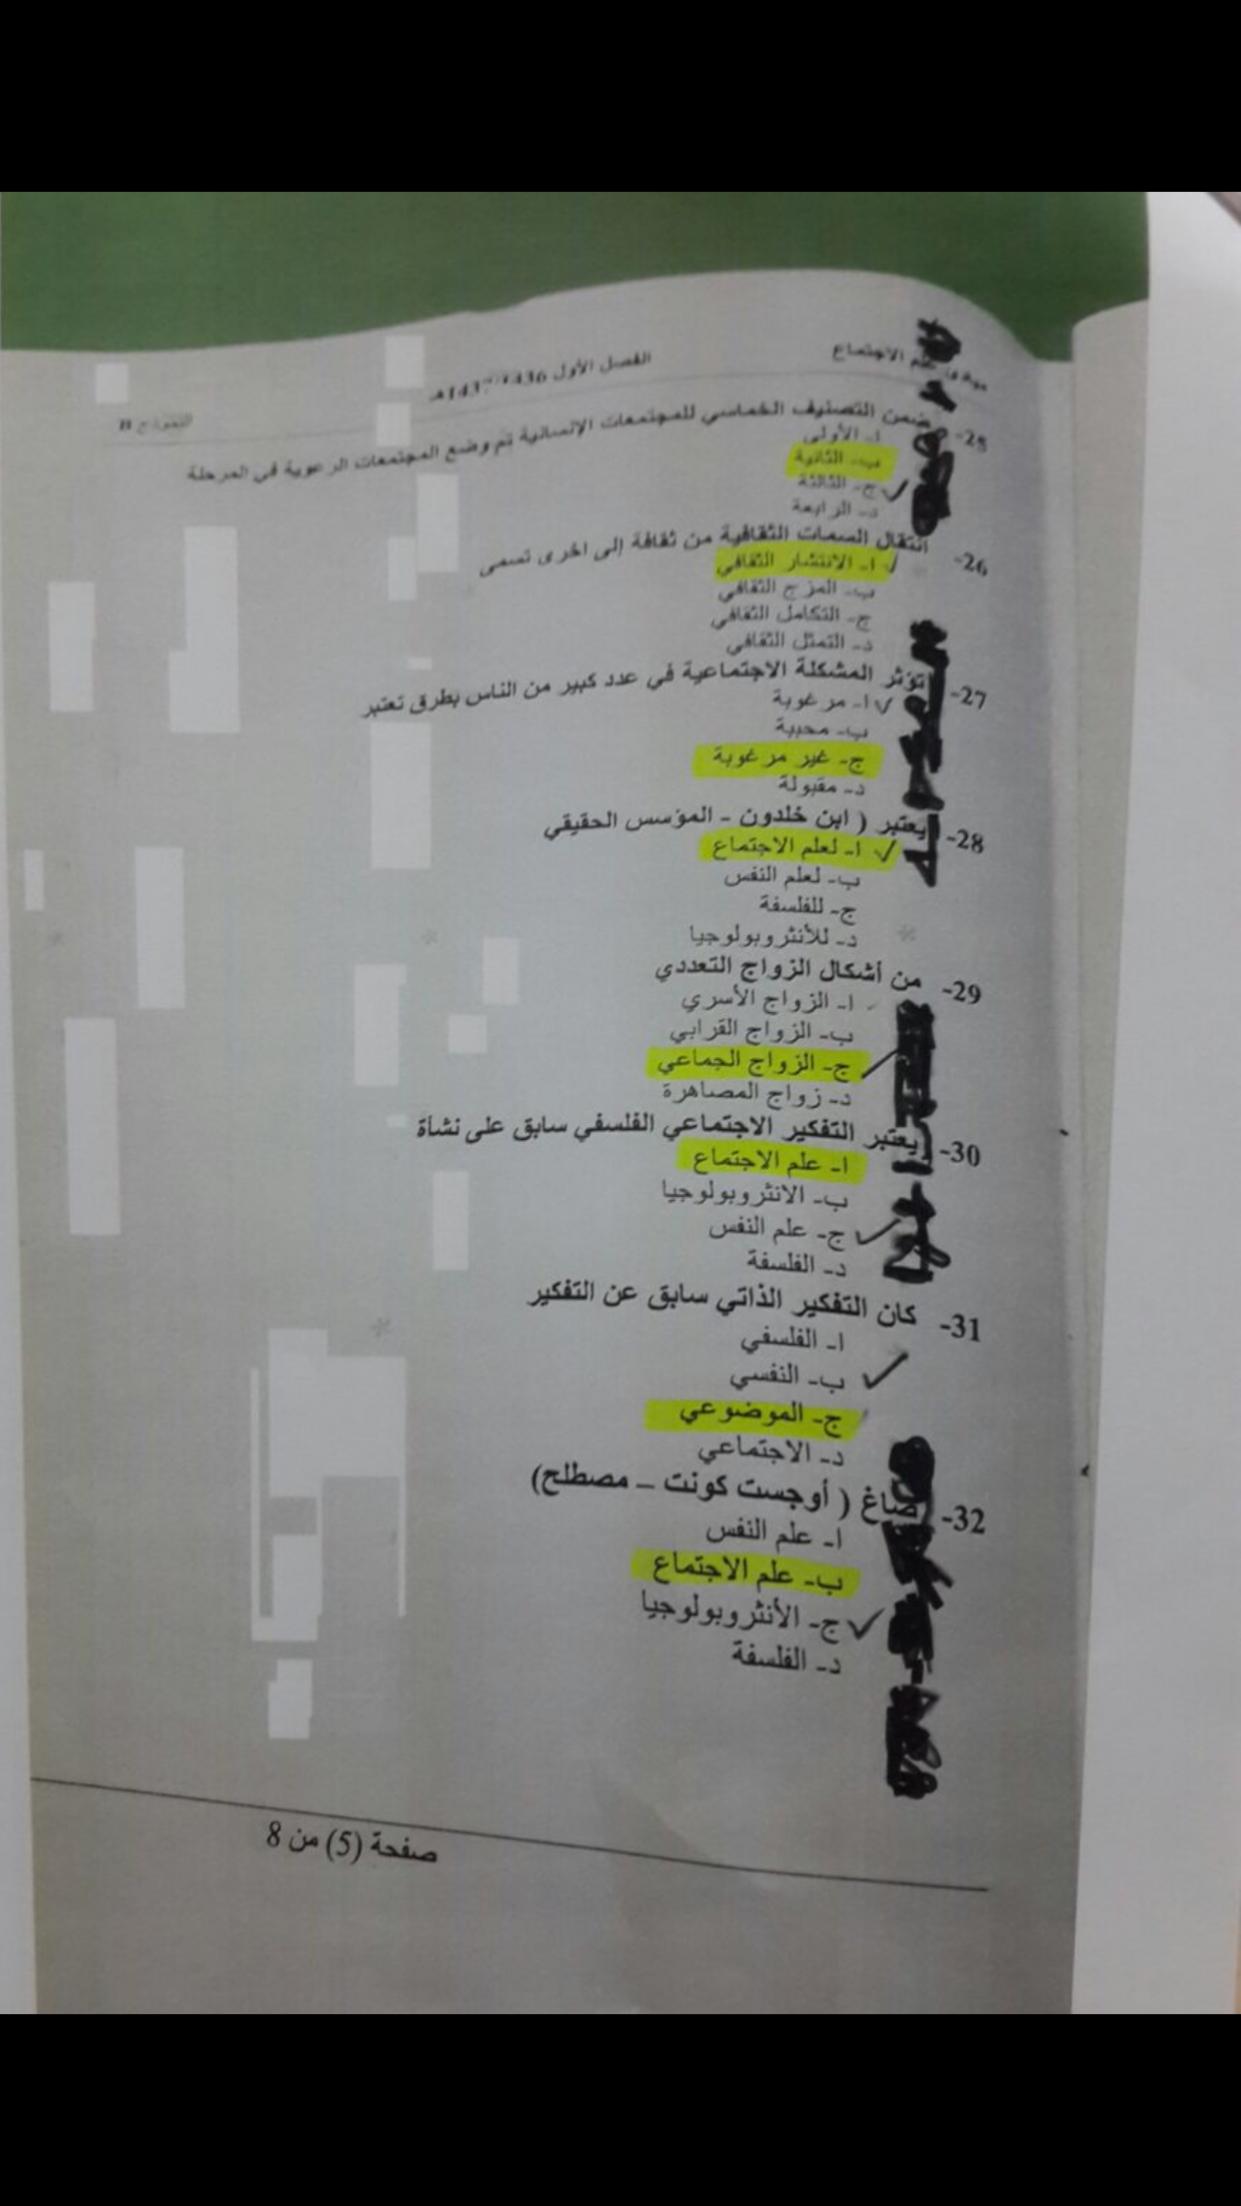 علم الاجتماع
الفصل الأول 1436
النموذج B
25- ضمن التصنيف الخماسي للمجتمعات الإنسانية تم وضع المجتمعات الرعوية في المرحلة
ا- الأولى
ب- الثانية
ج- الثالثة
د- الرابعة
26- انتقال السمات الثقافية من ثقافة إلى اخرى تسمى
ا- الانتشار الثقافي
ب- المزج الثقافي
ج- التكامل الثقافي
د- التمثل الثقافي
27- تؤثر المشكلة الاجتماعية في عدد كبير من الناس بطرق تعتبر
ا- مرغوبة
ب- محببة
ج- غير مرغوبة
د- مقبولة
28- يعتبر ( ابن خلدون - المؤسس الحقيقي
ا- لعلم الاجتماع
ب- لعلم النفس
ج- للفلسفة
د- للأنثروبولوجيا
29- من أشكال الزواج التعددي
ا- الزواج الأسري
ب- الزواج القرابي
ج- الزواج الجماعي
د- زواج المصاهرة
30- يعتبر التفكير الاجتماعي الفلسفي سابق على نشأة
ا- علم الاجتماع
ب- الانثروبولوجيا
ج- علم النفس
د- الفلسفة
31- كان التفكير الذاتي سابق عن التفكير
ا- الفلسفي
ب- النفسي
ج- الموضوعي
د- الاجتماعي
32- صاغ ( أوجست كونت – مصطلح)
ا- علم النفس
ب- علم الاجتماع
ج- الأنثروبولوجيا
د- الفلسفة
صفحة (5) من 8